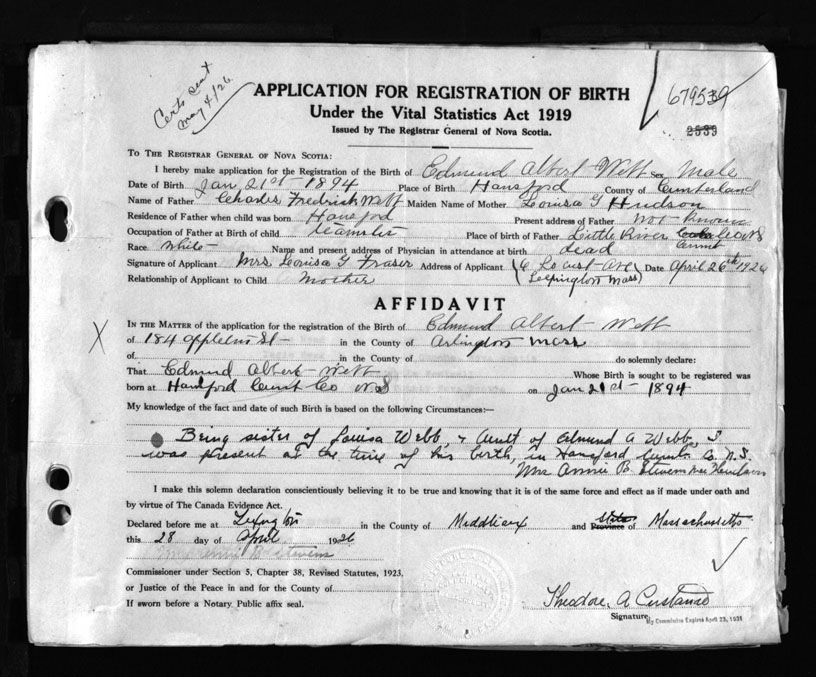 Certs sent
May 4/26
679539
2539
APPLICATION FOR REGISTRATION OF BIRTH
Under the Vital Statistics Act 1919
Issued by The Registrar General of Nova Scotia.
TO THE REGISTRAR GENERAL OF NOVA SCOTIA:
I hereby make application for the Registration of the Birth of Edmund Albert Webb Sex Male
Date of Birth Jan 21st 1894 Place of Birth Hansford County of Cumberland
Name of Father Charles Fredrick Webb Maiden Name of Mother Louisa G Hudson
Residence of Father when child was born Hansford Present address of Father Not known
Occupation of Father at Birth of child teamster Place of birth of Father Little River Co NS
Race White Name and present address of Physician in attendance at birth dead
Signature of Applicant Mrs Louisa G Fraser Address of Applicant (6 Locust Ave Lexington Mass) Date April 26th 1926
Relationship of Applicant to Child Mother
AFFIDAVIT
X
IN THE MATTER of the application for the registration of the Birth of Edmund Albert Webb
of 184 Appleton St in the County of Arlington Mass
of in the County of do solemnly declare:
That Edmund Albert Webb Whose Birth is sought to be registered was
born at Hansford Cumb Co NS on Jan 21st 1894
My knowledge of the fact and date of such Birth is based on the following Circumstances:—
Being sister of Louisa Webb, & Aunt of Edmund A Webb, I
was present at the time of his birth, in Hansford Cumb. Co. N.S.
Mrs Annie B. Stevens nee Hudson
I make this solemn declaration conscientiously believing it to be true and knowing that it is of the same force and effect as if made under oath and
by virtue of The Canada Evidence Act.
Declared before me at Lexington in the County of Middlesex and State Province of Massachusetts
this 28 day of April 1926
Mrs Annie B Stevens
Commissioner under Section 5, Chapter 38, Revised Statutes, 1923,
or Justice of the Peace in and for the County of
If sworn before a Notary Public affix seal.
Theodore A Custance
Signature
My Commission Expires April 23, 1931